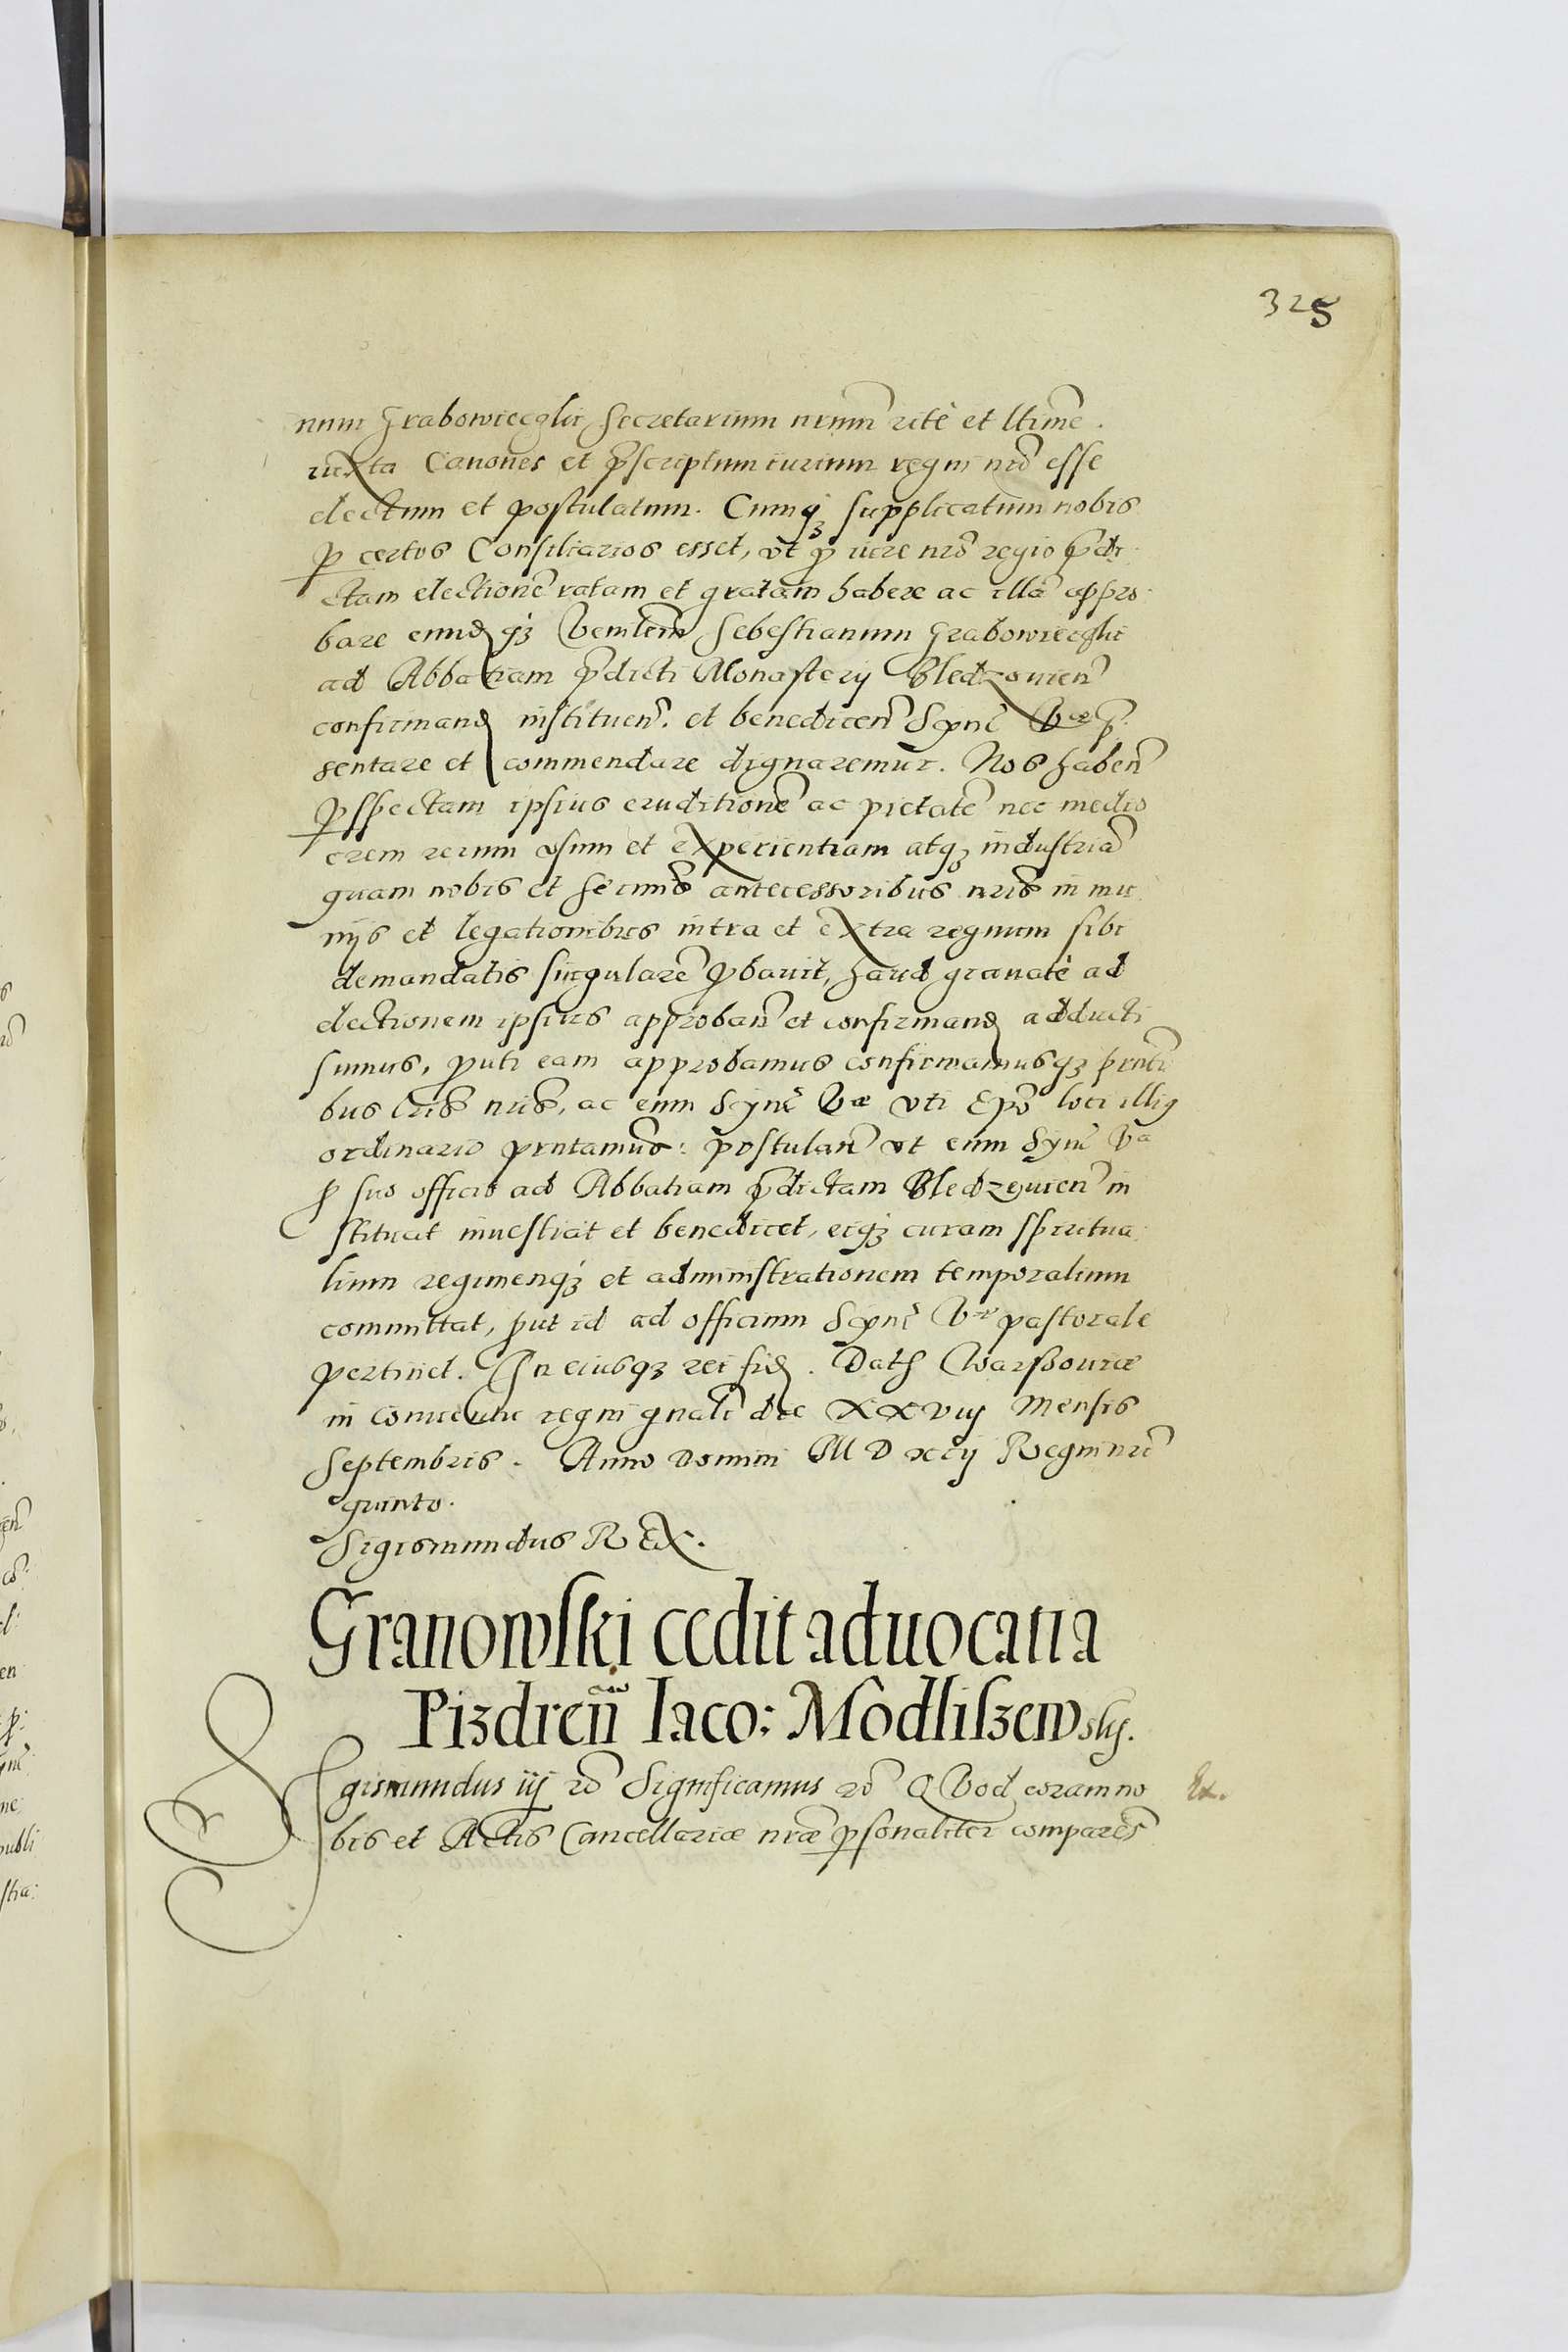 325
num Grabowieczki Secretarium nrum̃ ritè et ltime͂.
iuxta Canones et p̃scriptum iurium regni nrĩ esse
electum et postulatum. Cumqȝ supplicatum nobis
ꝑ certos Consiliarios esset, vt ꝓ iure nrõ regio p̃di
ctam electionẽ ratam et gratam habere ac illã appro
bare eundqȝ Venlem̃ Sebestianum Grabowieczki
ad Abbatiam p̃dicti Monasterij Bledzouien̄
confirmand instituen̄. et benedicen̄ Syñi Vræ p̃
sentare et commendare dignaremur. Nos haben̄
ꝑspectam ipsius eruditionẽ ac pietatẽ nec medio
crem rerum vsum et experientiam atqȝ industriã
quam nobis et Sermis̃ antecessoribus nris̃ in mu
nijs et legationibus intra et extra regnum sibi
demandatis singularẽ ꝓbauit, haud grauatè ad
electionem ipsius approban̄ et confirmand adducti
sumus, ꝓuti eam approbamus confirmamusqȝ pñti
bus lris̃ nris̃, ac eum Syñi Vræ vti Epõ loci illiꝰ
ordinario pñtamus: postulan̄ vt eum Syñi Vra
ꝓ suo officio ad Abbatiam p̃dictam Bledzeuien̄ in
stituat inuestiat et benedicet, eiqȝ curam spiritua
lium regimenqȝ et administrationem temporalium
committat, ꝓut id ad officium Syñi Vræ pastorale
pertinet. In eiusqȝ rei fid. Dat Warssouiæ
in conuentu regni gñali die XXVIIJ Mensis
Septembris. Anno Domini M D xcij Regni nrĩ
quinto.
Sigismundus REX.
Granowski cedit aduocatia
Pizdren̄ Iaco: Modliszewsky.
Sigismundus iij rõ Significamus rõ QVod coram no
bis et Actis Cancellariæ nræ ꝑsonaliter comparẽs
Ex.